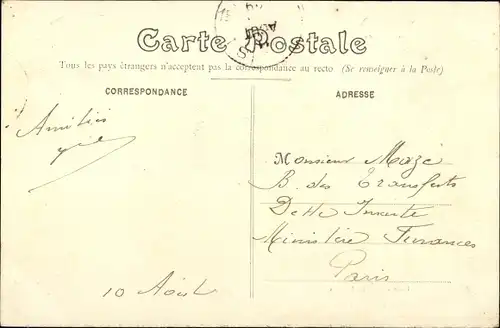 Carte Postale
Tous les pays étrangers n'acceptent pas la correspondance au recto (Se renseigner à la Poste)
CORRESPONDANCE
ADRESSE
Amitiés
10 Août
Monsieur Mazé
B. des Transferts
Dette Inscrite
Ministère Finances
Paris